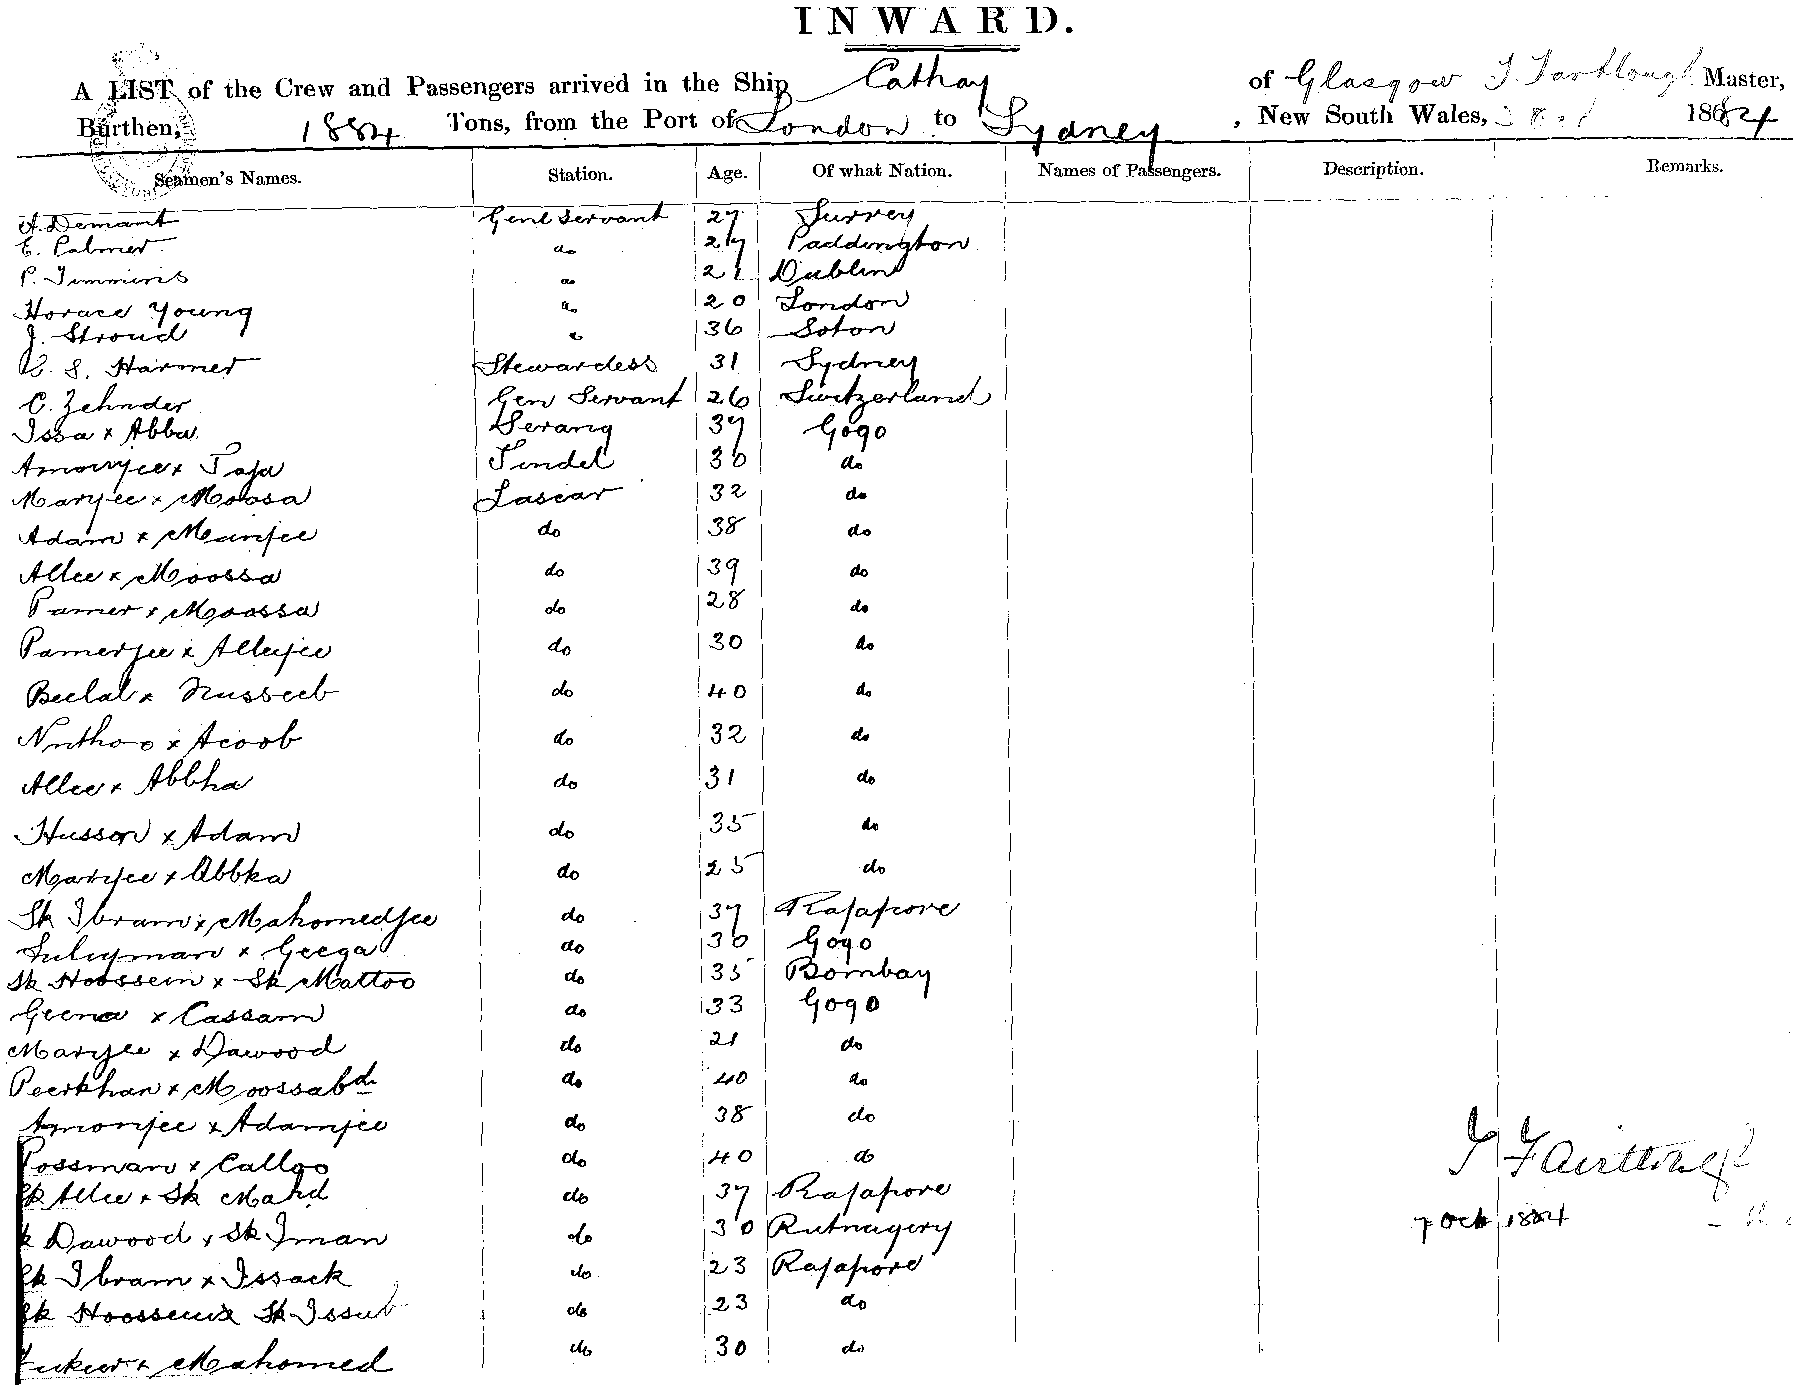 INWARD.
A LIST of the Crew and Passengers arrived in the Ship Cathay of Glasgow Master,
Burthen, 1884 Tons, from the Port of London to Sydney, New South Wales, 1884
Seamen's Names. Station. Age. Of what Nation. Names of Passengers. Description. Remarks.
A. Demant Genl Servant 27 Surrey
E. Palmer do 27 Paddington
P. Timmins do 21 Dublin
Horace Young do 20 London
J. Stroud 36 Soton
S. Harmer Stewardess 31 Sydney
C. Zehnder Gen Servant 26 Switzerland
Issa x Abba Serang 37 Gogo
Amonjee x Tindel 30 do
Maryee x Moosa Lascar 32 do
Adam x Manjee do 38 do
Allee x Moossa do 39 do
Pamer x Moossa do 28 do
Pamerjee x Alleejee do 30 do
Beelal x Nusseeb do 40 do
Nuthoo x Acoob do 32 do
Allee x Abbha do 31 do
Husson x Adam do 35 do
Maryee x Abbka do 25 do
Sk Ibram x Mahomedjee do 37 Rajapore
Suleyman x Geega do 30 Gogo
Sk Hoossein x Sk Mattoo do 35 Bombay
Geena x Cassam do 33 Gogo
Maryee x Dawood do 21 do
Peerkhan x Moossabd do 40 do
Amonjee x Adamjee do 38 do
Possman x Calloo do 40 do
Sk Allee x Sk Mahd do 37 Rajapore
Sk Dawood x Sk Iman do 30 Rutnagery
Sk Ibram x Issack do 23 Rajapore
Sk Hoossein x Sk Issub do 23 do
x Mahomed do 30 do
7 Oct 1884